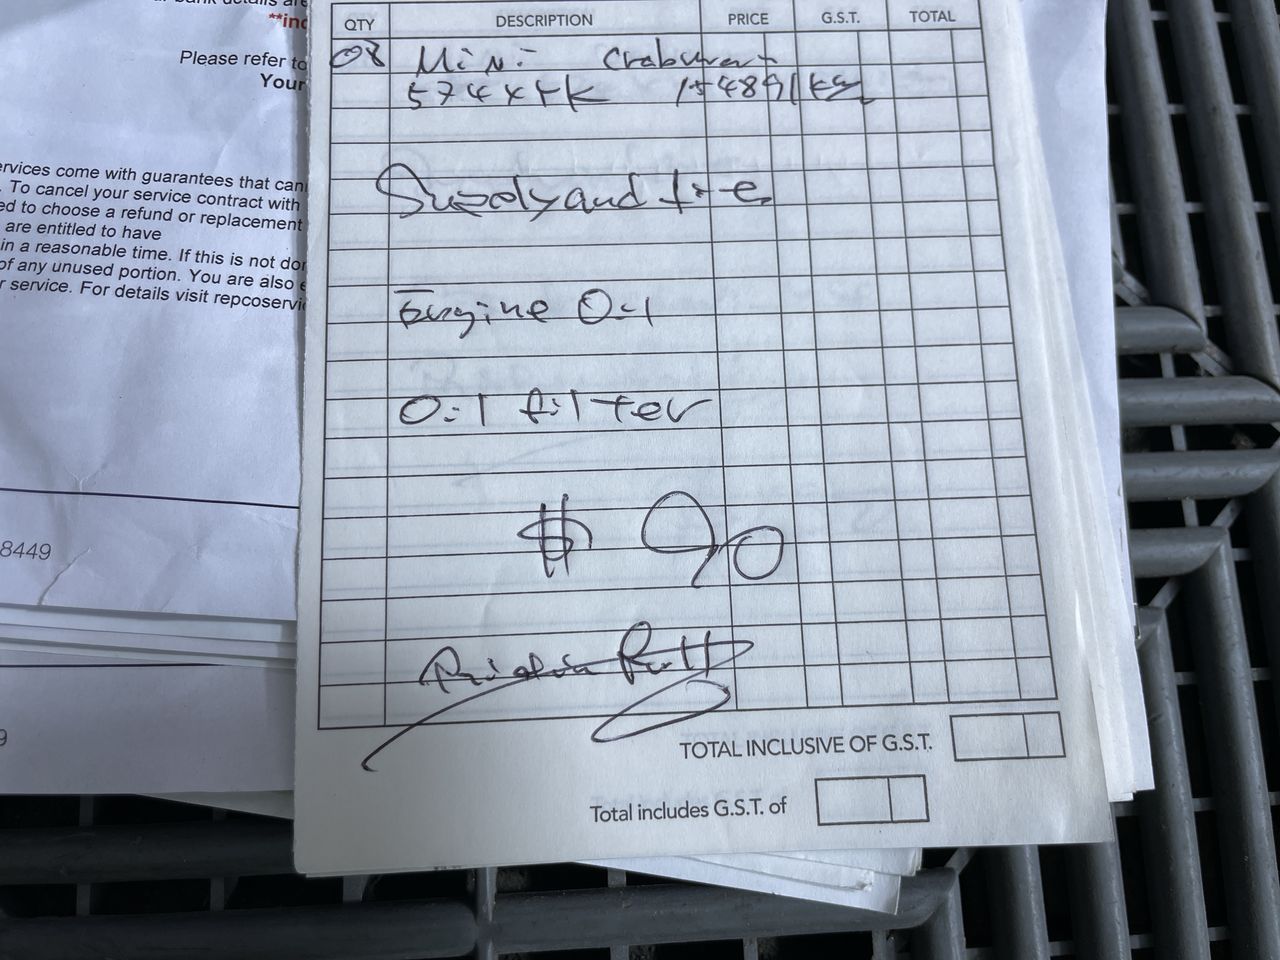 r bank details are
**inc
Please refer to
Your
ervices come with guarantees that can
. To cancel your service contract with
ed to choose a refund or replacement
are entitled to have
in a reasonable time. If this is not don
of any unused portion. You are also e
r service. For details visit repcoservi
8449
9
QTY DESCRIPTION PRICE G.S.T. TOTAL
08 Mini
154891 kms
Supply and
Engine Oil
Oil filter
$ 90
TOTAL INCLUSIVE OF G.S.T.
Total includes G.S.T. of